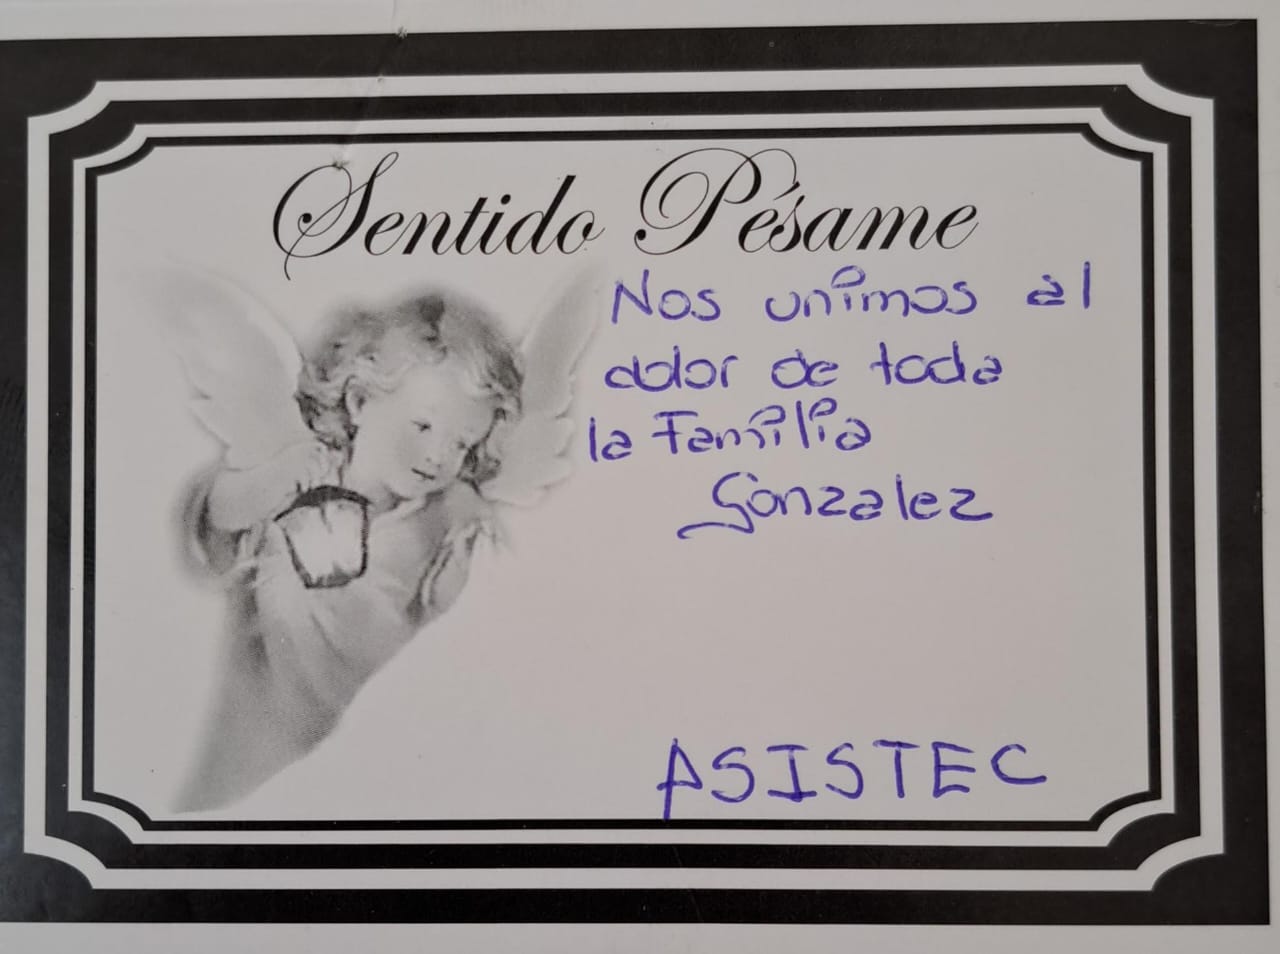 Sentido Pésame
Nos unimos al
dolor de toda
la Familia
Gonzalez
ASISTEC